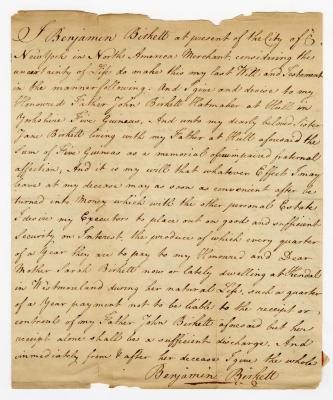 I Benjamin Birkett at present of the City of
New York in North America Merchant, considering the
uncertainty of Life do make this my last Will and Testament
in the manner following. And I give and devise to my
Honoured Father John Birkett Hatmaker at Hull in
Yorkshire Five Guineas, And unto my dearly beloved Sister
Jane Birkett living with my Father at Hull aforesaid the
Sum of Five Guineas as a memorial of unimpaired fraternal
affection, And it is my will that whatever Effects I may
leave at my decease may as soon as convenient after be
turned into Money which with the other personal Estate
I desire my Executor to place out on good and sufficient
Security on Interest, the produce of which every quarter
of a Year they are to pay to my Honoured and Dear
Mother Sarah Birkett now or lately dwelling at Kendal
in Westmoreland during her natural Life, such a quarter
of a Year payment not to be liable to the receipt or
controul of my Father John Birkett aforesaid but her
receipt alone shall be a sufficient discharge. And
immediately from & after her decease I give the whole
Benjamin Birkett